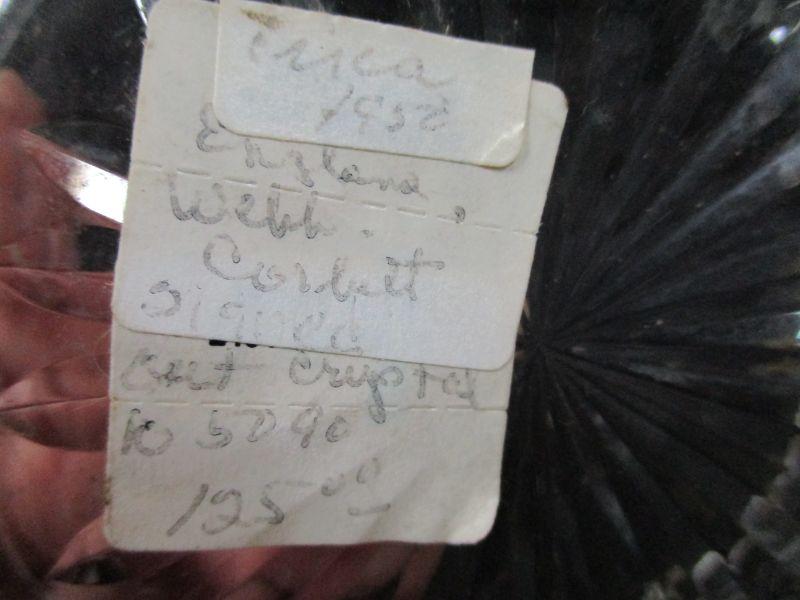 circa
1952
England,
Webb.
Corbett
signed
cut crystal
125.00